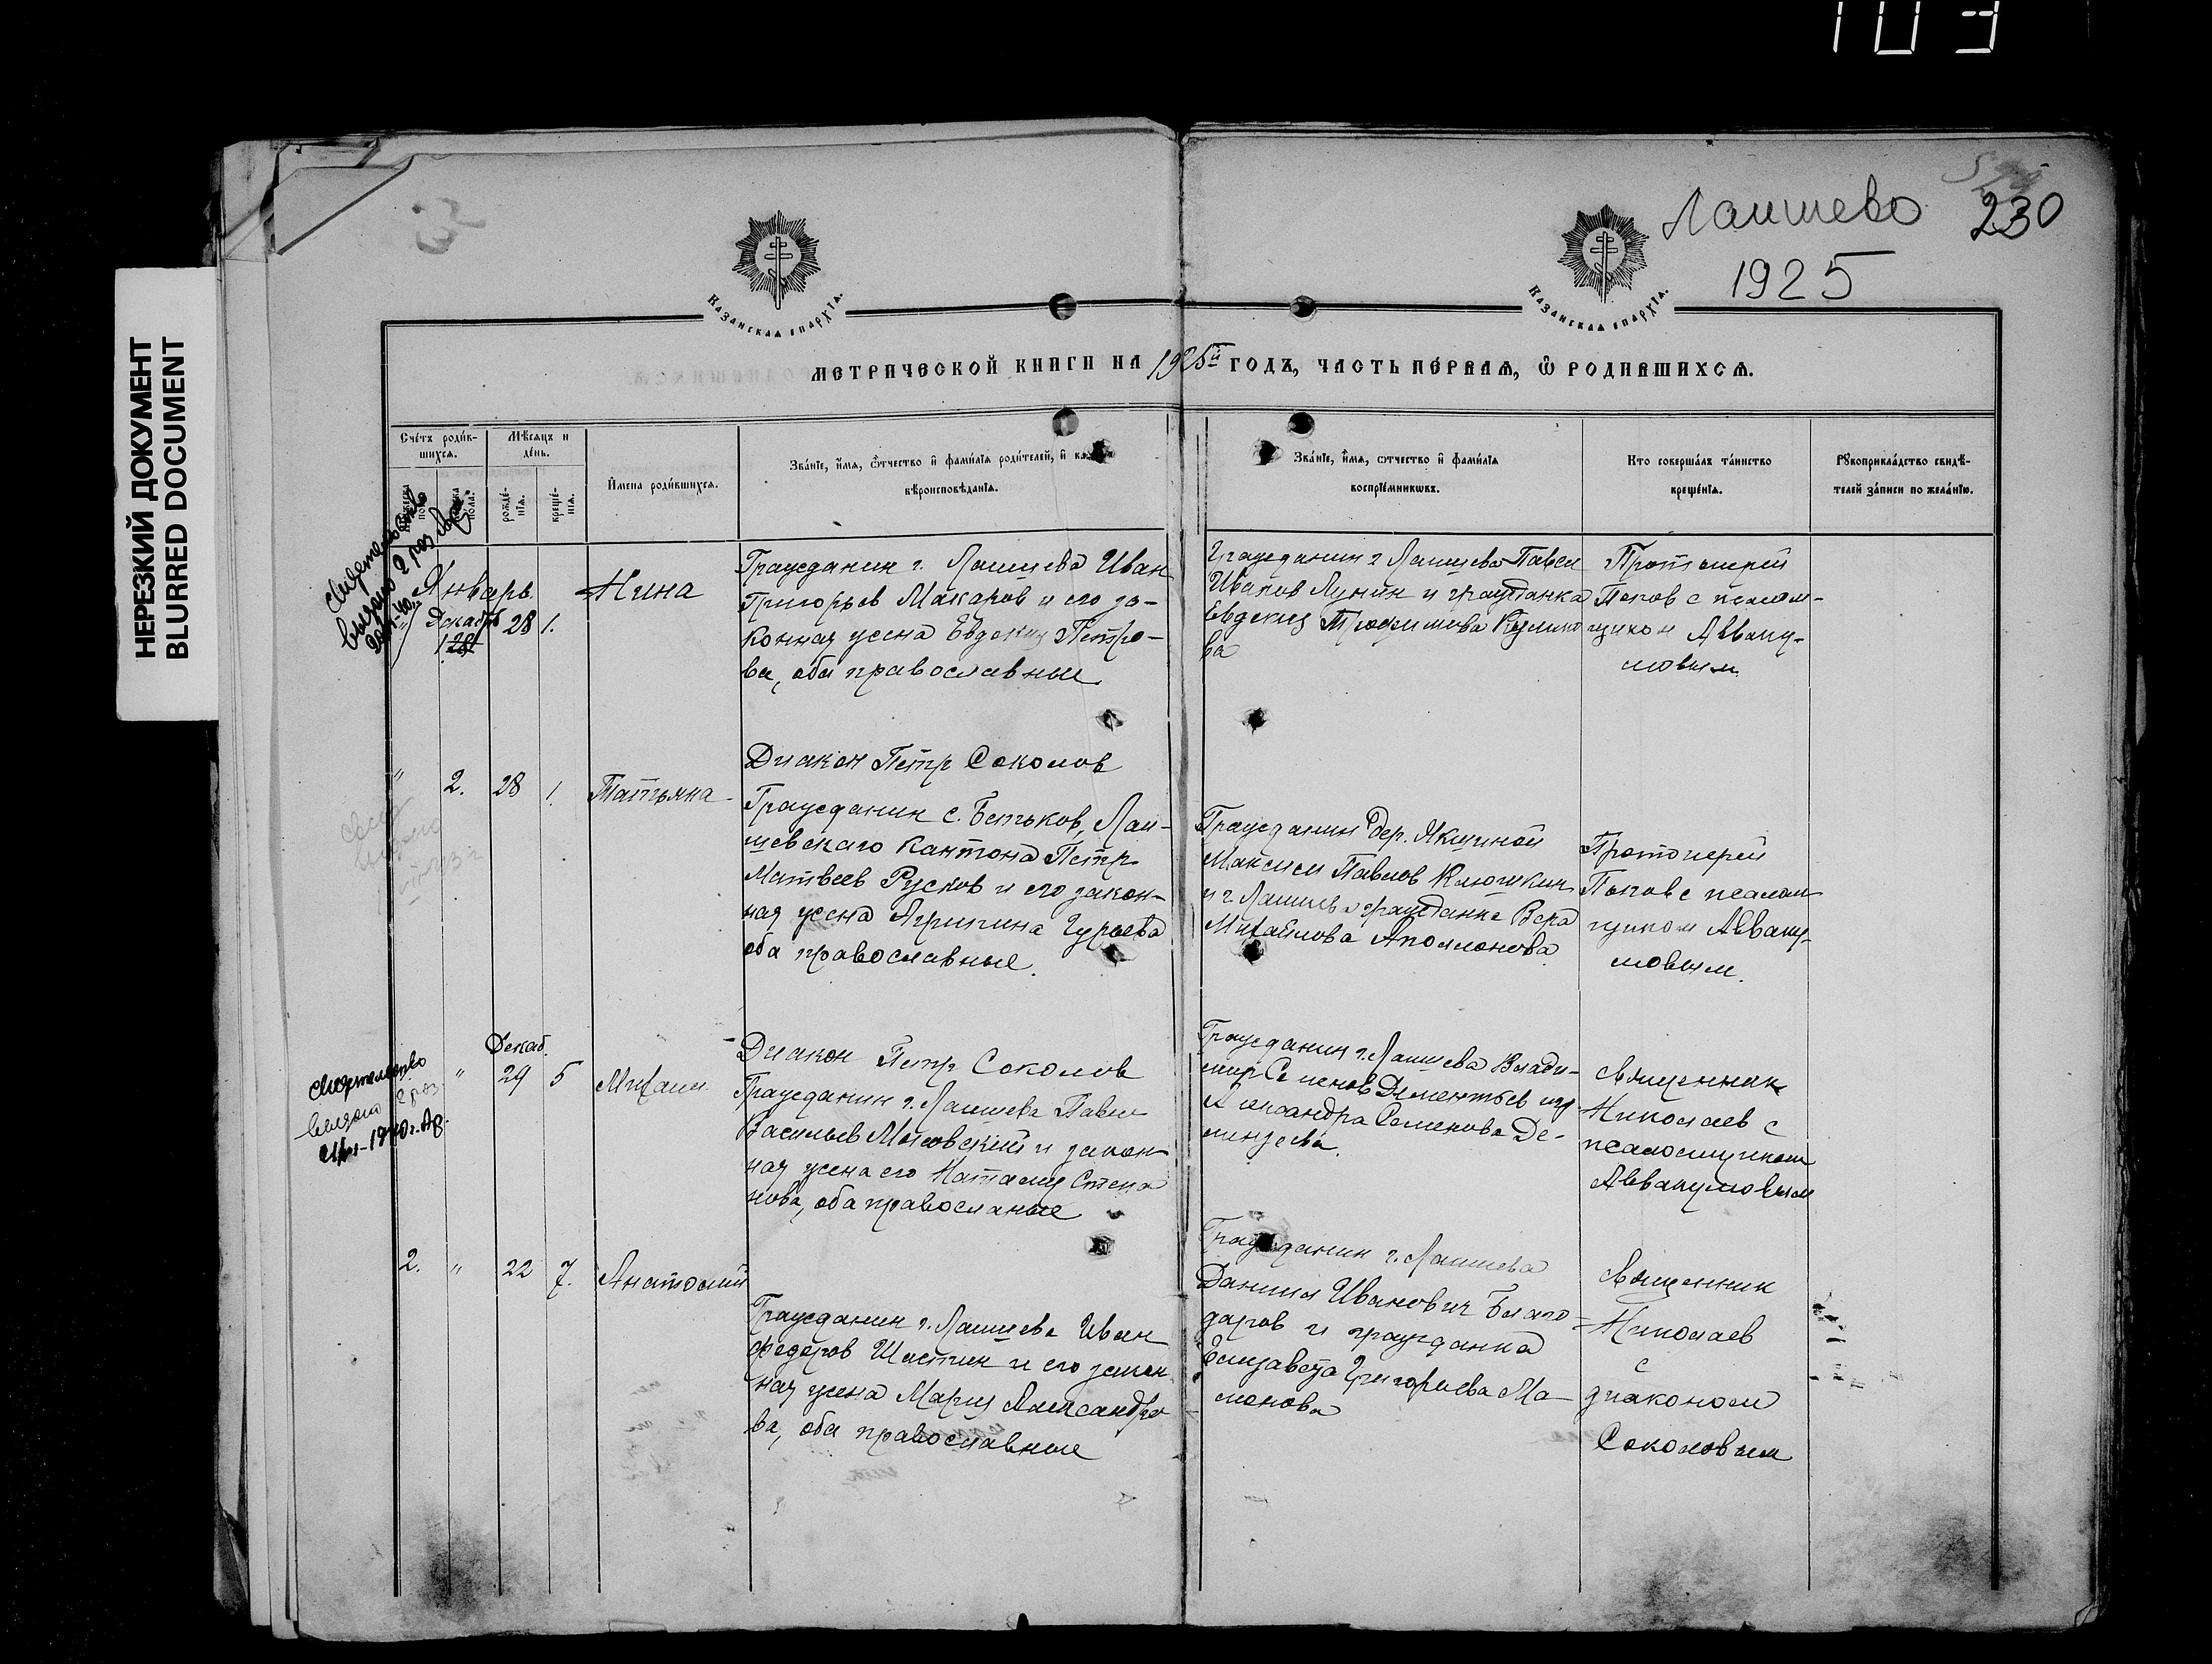 103
НЕРЕЗКИЙ ДОКУМЕНТ
BLURRED DOCUMENT
Лаишево 230
1925
Казанская епархїа.
Казанская епархїа.
МЕТРИЧЕСКОЙ КНИГИ НА 1925й ГОДЪ, ЧАСТЬ ПЕРВАЯ, Ѡ РОДИВШИХСЯ.
Счетъ родив-
шихся.
Мѣсяцъ и
день.
рожде-
нія.
креще-
нія.
Имена родившихся.
Званіе, имя, отчество и фамилія родителей, и
вѣроисповѣданія.
Званіе, имя, отчество и фамилія
воспріемниковъ.
Кто совершалъ таинство
крещенія.
Рукоприкладство свидѣ-
телей записи по желанію.
Свидетельство
выдано 2 раз
Январь.
Декабр
1 28 1.
Нина
Гражданин г. Лаишева Иван
Григорьев Макаров и его за-
конная жена Евдокия Петро-
ва, оба православные
Гражданин г Лаишева Павел
Иванов Лунин и гражданка
Евдокия Трофимова Кулико
ва
Протоиерей
Попов с псалом-
щиком Аввaку-
мовым.
Диакон Петр Соколов
" 2. 28 1. Татьяна
Гражданин с. Бетьков, Лаи-
шевскаго Кантона Петр
Матвеев Русков и его закон-
ная жена Агрипина Гурьева
оба православные.
Гражданин дер. Якциной
Максим Павлов Клюшкин
и г Лаишева гражданка Вера
Михайлова Аполлонова
Протоиерей
Попов с псалом
щиком Аввaку-
мовым.
Свидетельство
выдано 2 раз
Декаб.
" 29 5 Михаил
Диакон Петр Соколов
Гражданин г. Лаишева Павел
Васильев и закон-
ная жена его Наталия Степа
нова, оба православные
Гражданин г. Лаишева Влади-
мир Семенов Дементьев и
Александра Семенова Де-
Священник
Николаев с
псаломщиком
Аввакумовым
2. " 22 7. Анатолий
Гражданин г. Лаишева Иван
Федоров Шастин и его закон
ная жена Мария Александро
ва, оба православные
Гражданин г. Лаишева
Даниил Иванович Благо-
даров и гражданка
Елизавета Григорьева Ма-
монова
Священник
Николаев
с
диаконом
Соколовым